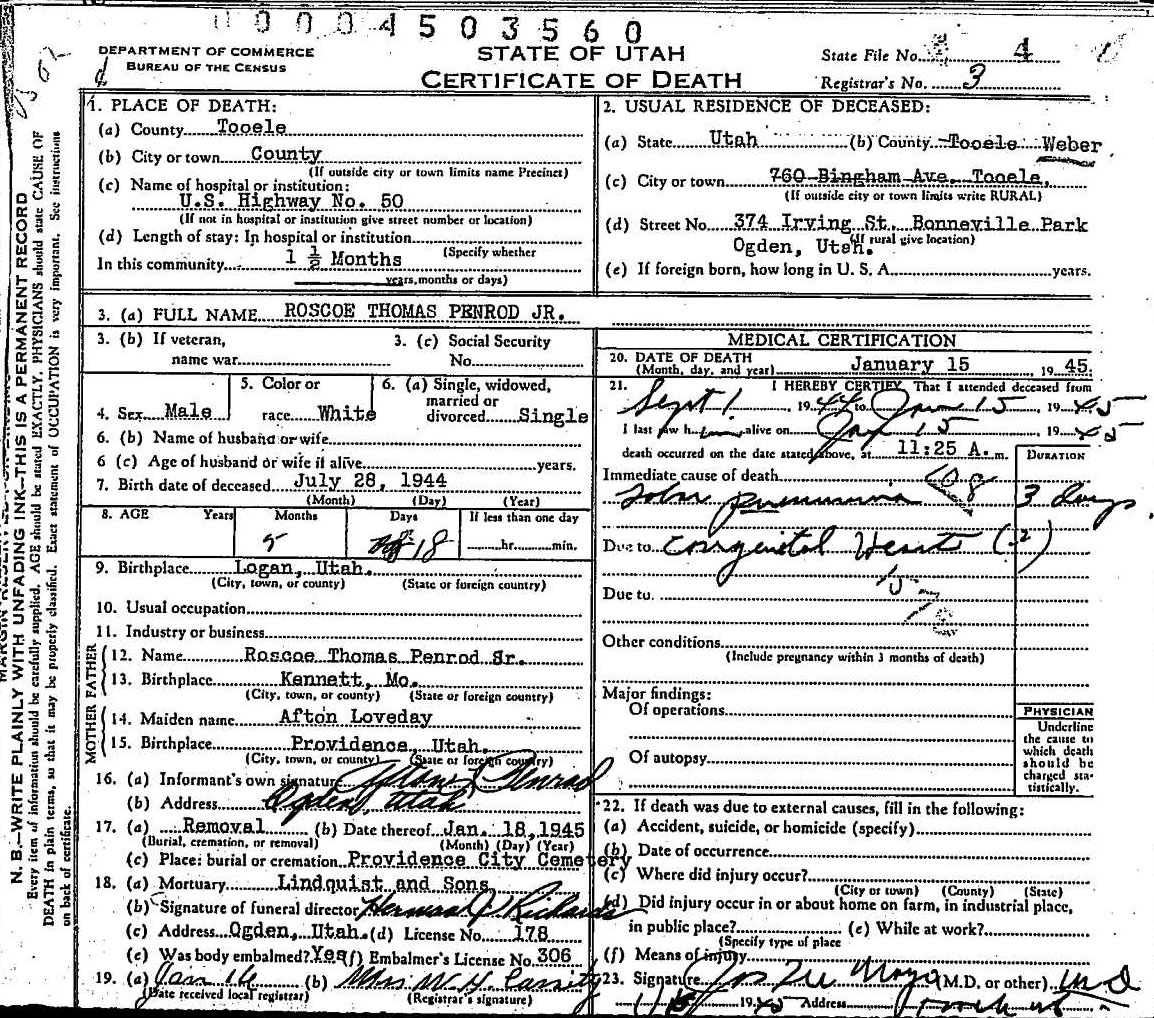 00004503560
DEPARTMENT OF COMMERCE
BUREAU OF THE CENSUS
STATE OF UTAH
CERTIFICATE OF DEATH
State File No. 4
Registrar's No. 3
N. B.—WRITE PLAINLY WITH UNFADING INK—THIS IS A PERMANENT RECORD
Every item of information should be carefully supplied. AGE should be stated EXACTLY. PHYSICIANS should state CAUSE OF
DEATH in plain terms, so that it may be properly classified. Exact statement of OCCUPATION is very important. See instructions
on back of certificate.
1. PLACE OF DEATH:
(a) County Tooele
(b) City or town County
(If outside city or town limits name Precinct)
(c) Name of hospital or institution:
U.S. Highway No. 50
(If not in hospital or institution give street number or location)
(d) Length of stay: In hospital or institution
(Specify whether
In this community 1 ½ Months
years, months or days)
2. USUAL RESIDENCE OF DECEASED:
(a) State Utah (b) County Tooele Weber
(c) City or town 760 Bingham Ave. Tooele,
(If outside city or town limits write RURAL)
(d) Street No. 374 Irving St. Bonneville Park
Ogden, Utah. (If rural give location)
(e) If foreign born, how long in U. S. A. years.
3. (a) FULL NAME ROSCOE THOMAS PENROD JR.
3. (b) If veteran,
name war
3. (c) Social Security
No.
4. Sex Male
5. Color or
race White
6. (a) Single, widowed,
married or
divorced Single
6. (b) Name of husband or wife
6 (c) Age of husband or wife if alive years.
7. Birth date of deceased July 28, 1944
(Month) (Day) (Year)
8. AGE Years Months Days If less than one day
5 18 hr. min.
9. Birthplace Logan, Utah.
(City, town, or county) (State or foreign country)
10. Usual occupation
11. Industry or business
FATHER
12. Name Roscoe Thomas Penrod Sr.
13. Birthplace Kennett, Mo.
(City, town, or county) (State or foreign country)
MOTHER
14. Maiden name Afton Loveday
15. Birthplace Providence, Utah.
(City, town, or county) (State or foreign country)
16. (a) Informant's own signature Afton Penrod
(b) Address Ogden, Utah
17. (a) Removal (b) Date thereof Jan. 18, 1945
(Burial, cremation, or removal) (Month) (Day) (Year)
(c) Place: burial or cremation Providence City Cemetery
18. (a) Mortuary Lindquist and Sons
(b) Signature of funeral director Herman J. Richards
(c) Address Ogden, Utah. (d) License No. 178
(e) Was body embalmed? Yes (f) Embalmer's License No. 306
19. (a) Jan 16 (b) Mrs W. H. Cassity
(Date received local registrar) (Registrar's signature)
MEDICAL CERTIFICATION
20. DATE OF DEATH
(Month, day, and year) January 15, 1945.
21. I HEREBY CERTIFY, That I attended deceased from
Sept 1, 1944 to Jan 15, 1945
I last saw him alive on Jan 15 1945
death occurred on the date stated above, at 11:25 A. m.
DURATION
Immediate cause of death 108
Lobar pneumonia 3 days
Due to Congenital Heart (?)
157
Due to.
Other conditions
(Include pregnancy within 3 months of death)
Major findings:
Of operations
Of autopsy
PHYSICIAN
Underline
the cause to
which death
should be
charged sta-
tistically.
22. If death was due to external causes, fill in the following:
(a) Accident, suicide, or homicide (specify)
(b) Date of occurrence
(c) Where did injury occur?
(City or town) (County) (State)
(d) Did injury occur in or about home on farm, in industrial place,
in public place? (e) While at work?
(Specify type of place
(f) Means of injury
23. Signature (M.D. or other) MD
1945 Address